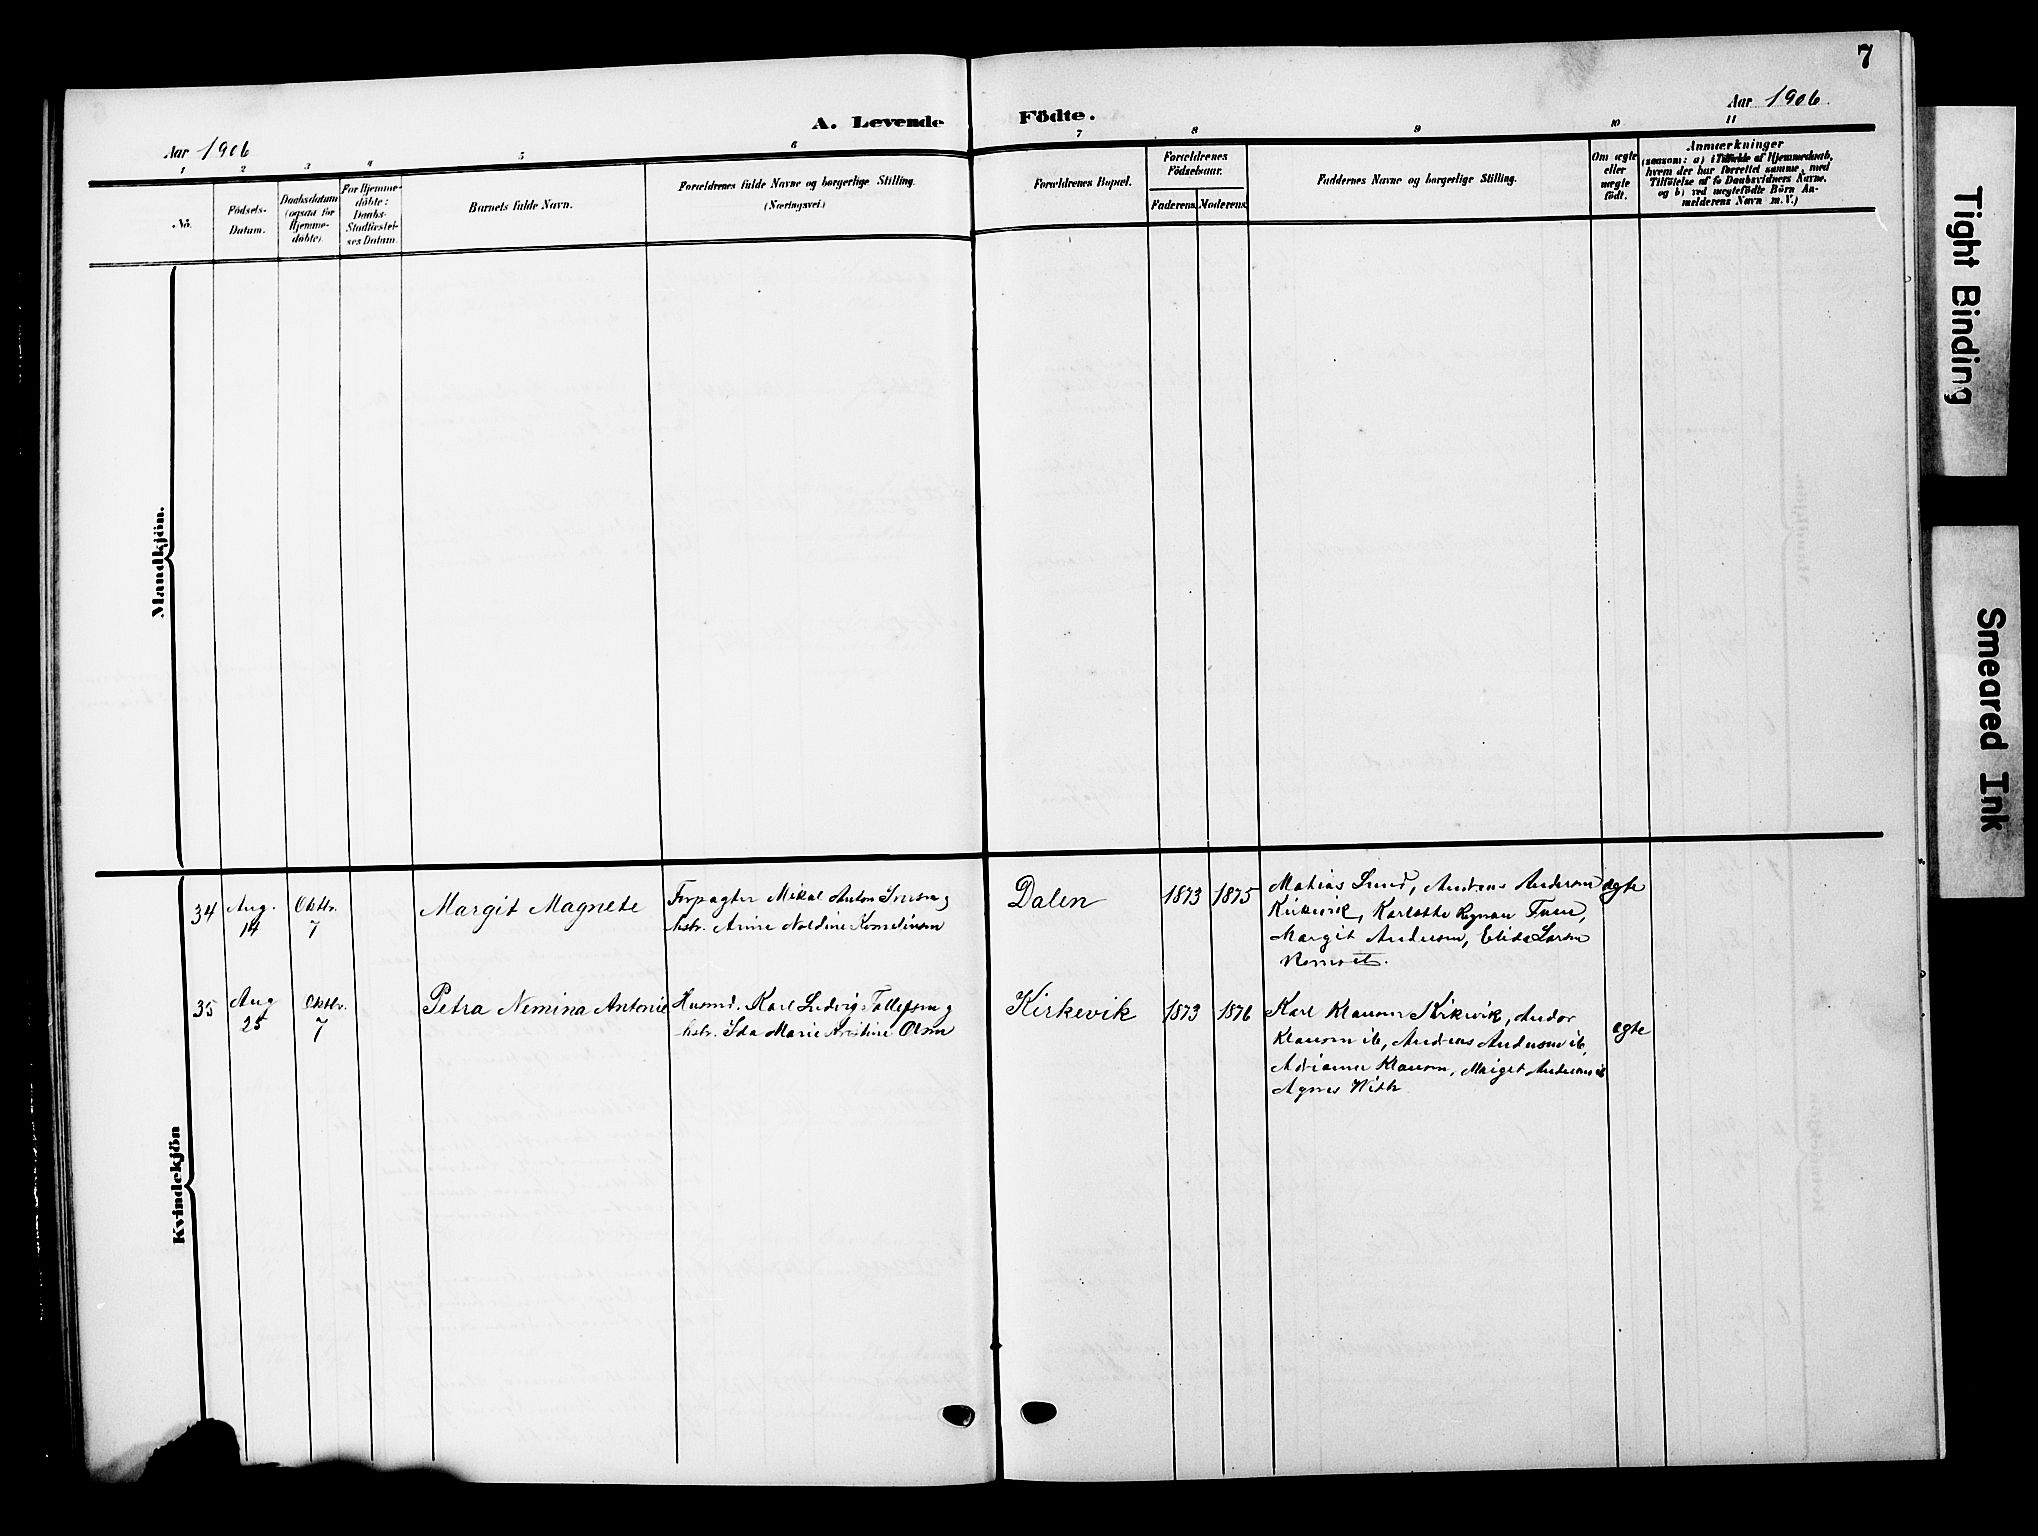 7
A. Levende Födte.
Aar 1906
Aar 1906.
1 2 3 4 5 6 7 8 9 10 11
No.
Födsels-
Datum.
Daabsdatum
(ogsaa for
Hjemme-
døbte).
For Hjemme-
døbte:
Daabs-
Stadfæstel-
ses Datum
Barnets fulde Navn.
Forældrenes fulde Navne og borgerlige Stilling.
(Næringsvei.)
Forældrenes Bopæl.
Forældrenes
Födselsaar.
Faderens. Moderens.
Faddernes Navne og borgerlige Stilling.
Om ægte
eller
uægte
født.
Anmærkninger
(saasom: a) i Tilfælde af Hjemmedaab,
hvem der har forrettet samme, med
Tilføielse af to Daabsvidners Navne.
og b) ved uægtefödte Börn An-
melderens Navn m. V.)
Mandkjön.
Kvindekjön
34
Aug.
14
Oktbr.
7
Margit Magnete
Forpagter Mikal Anton
hstr. Anne
Dalen
1873 1875
Matias Lund, Andreas Andersen
Kirkevik, Karlotte
Margit Andersen, Elida Larsen
ægte
35
Aug
25
Oktbr.
7
Petra Nemina Antonie
Husmd. Karl Ludvig Tollefsen og
hstr. Ida Marie Kristine Olsen
Kirkevik
1873 1876
Karl Klausen Kirkevik, Andor
Klausen ib, Andreas Andersen ib,
Klausen, Margit Andersen ib
Agnes
ægte
Tight Binding
Smeared Ink